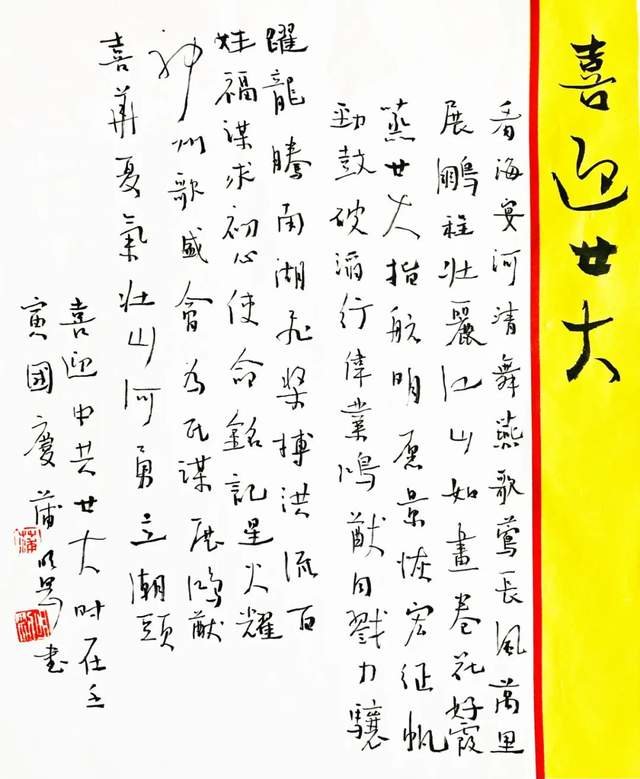 喜迎廿大
看海宴河清舞燕歌鶯長風萬里
展鵬程壯麗江山如畫卷花好霞
蒸廿大指航明愿景恢宏征帆
勁鼓破滔行偉業鴻猷同戮力驤
躍龍騰南湖飛槳搏洪流百
姓福謀求初心使命銘記星火耀
神州歌盛會為民謀展鴻猷
喜華夏氣壯山河勇立潮頭
喜迎中共廿大時在壬
寅國慶蒲书